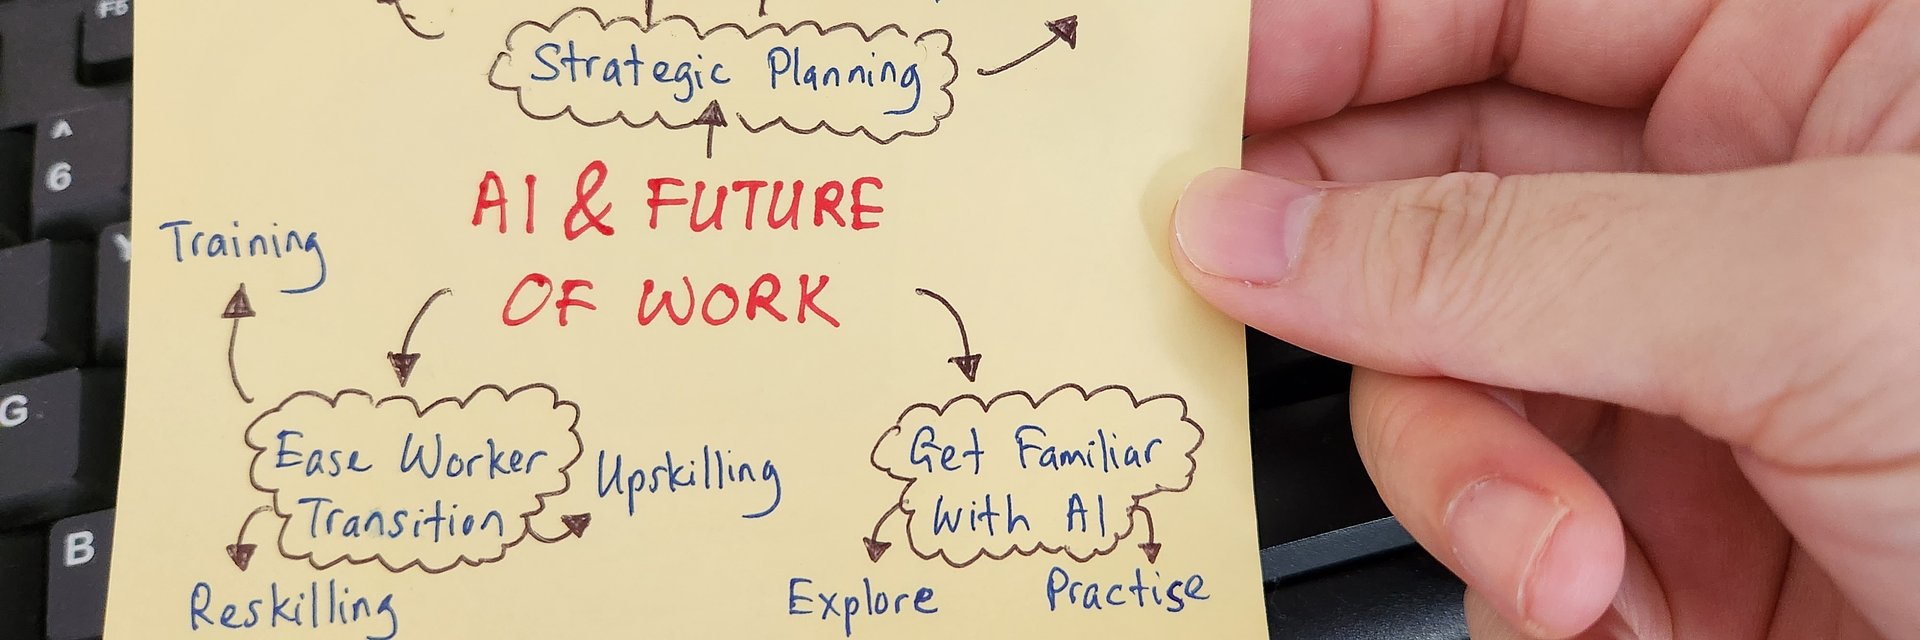 F5
Strategic Planning
^
6
AI & FUTURE
Training
OF WORK
G
Ease Worker
Transition
Upskilling
Get Familiar
With AI
B
Reskilling
Explore
Practise